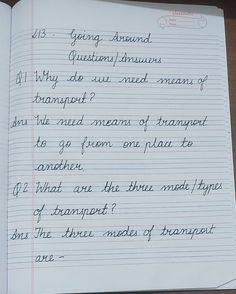 L13. Going Around
Questions/Answers
Q.1 Why do we need means of
transport?
Ans We need means of transport
to go from one place to
another.
Q.2 What are the three mode/types
of transport?
Ans The three modes of transport
are -